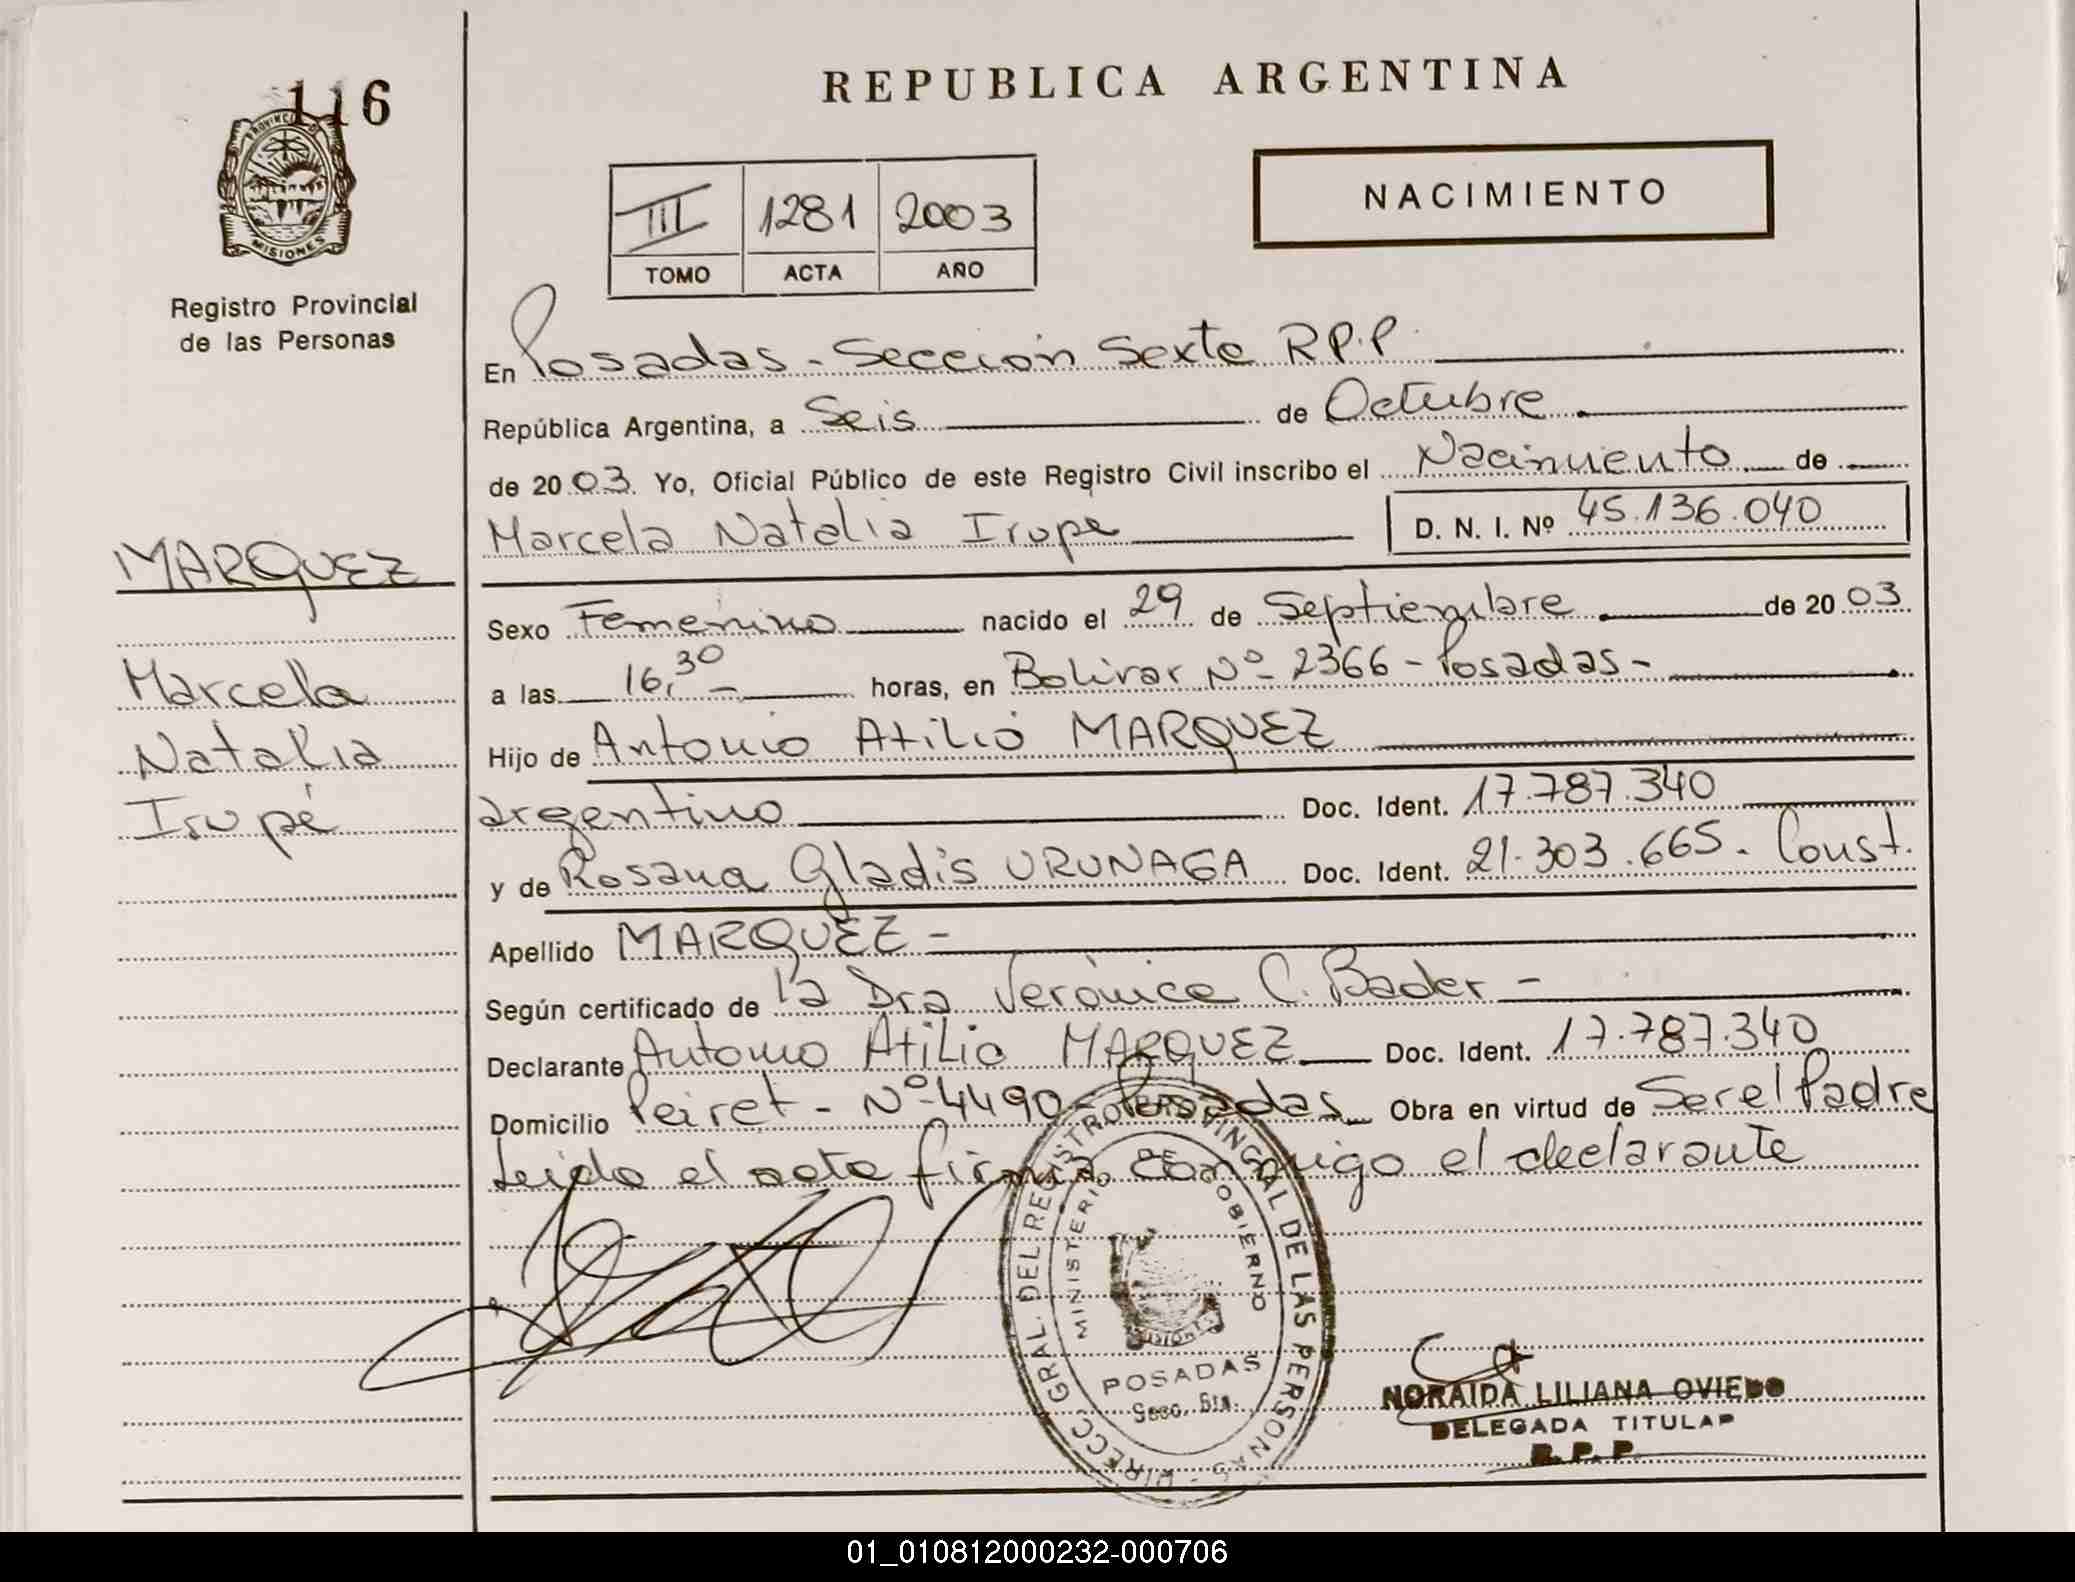 116
PROVINCIA DE
MISIONES
Registro Provincial
de las Personas
MARQUEZ
Marcela
Natalia
Irupé
REPUBLICA ARGENTINA
NACIMIENTO
III 1281 2003
TOMO ACTA AÑO
En Posadas - Sección Sexta R.P.P.
República Argentina, a Seis de Octubre
de 2003. Yo, Oficial Público de este Registro Civil inscribo el Nacimiento de
Marcela Natalia Irupe D. N. I. Nº 45.136.040
Sexo Femenino nacido el 29 de Septiembre de 2003
a las 16,30 - horas, en Bolivar Nº 2366 - Posadas -
Hijo de Antonio Atilio MARQUEZ
argentino Doc. Ident. 17.787.340
y de Rosana Gladis URUNAGA Doc. Ident. 21.303.665. Const.
Apellido MARQUEZ -
Según certificado de la Dra Verónica C. Bader -
Declarante Antonio Atilio MARQUEZ Doc. Ident. 17.787.340
Domicilio Peiret - Nº 4490 - Posadas Obra en virtud de Ser el Padre
Leida el acta firma conmigo el declarante
DIRECC. GRAL. DEL REGISTRO PROVINCIAL DE LAS PERSONAS -
MINISTERIO DE GOBIERNO
MISIONES
POSADAS
Secc. 6ta.
NORAIDA LILIANA OVIEDO
DELEGADA TITULAR
R. P. P.
01_010812000232-000706